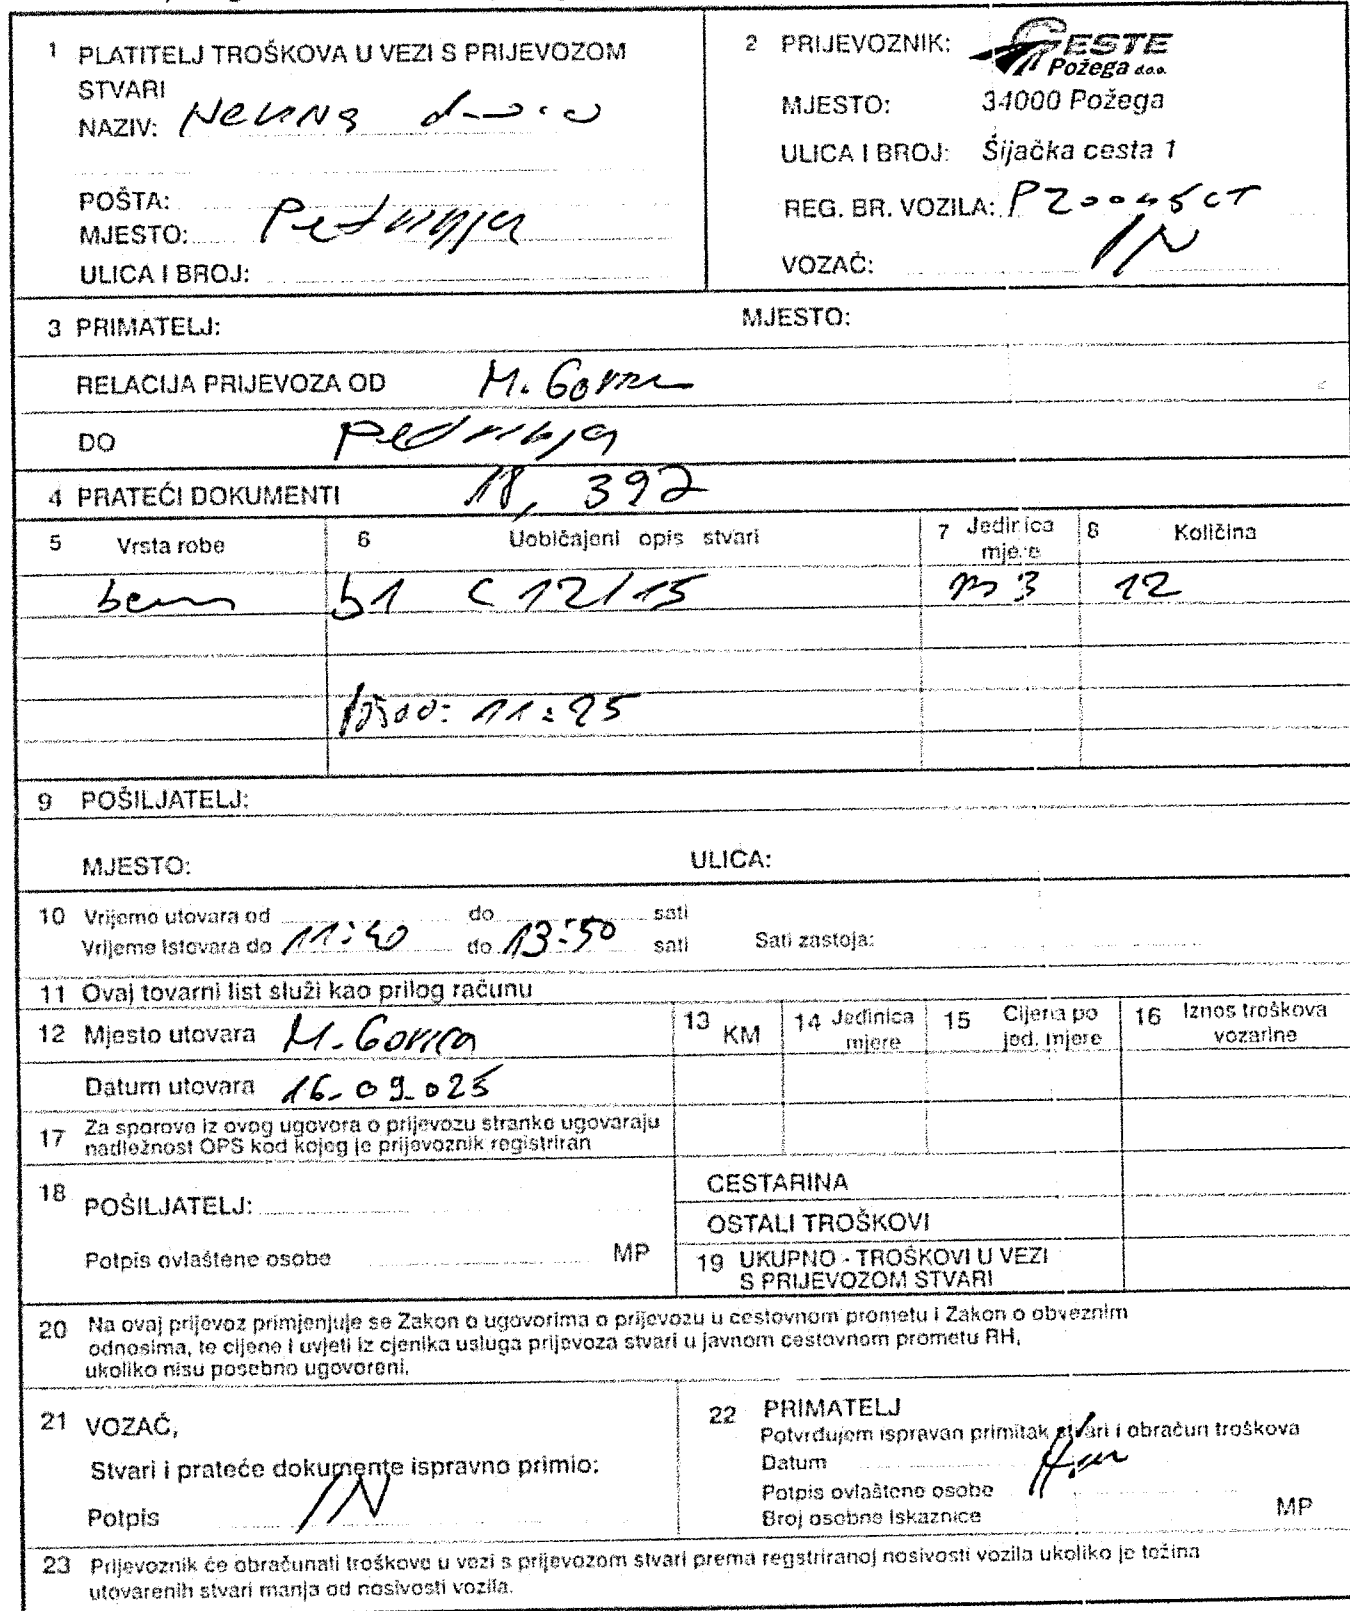 1 PLATITELJ TROŠKOVA U VEZI S PRIJEVOZOM
STVARI
NAZIV:
POŠTA:
MJESTO: Petrinja
ULICA I BROJ:
2 PRIJEVOZNIK: CESTE
Požega d.o.o.
MJESTO: 34000 Požega
ULICA I BROJ: Šijačka cesta 1
REG. BR. VOZILA: PZ0045CT
VOZAČ: IN
3 PRIMATELJ: MJESTO:
RELACIJA PRIJEVOZA OD M. Gorica
DO Petrinja
4 PRATEĆI DOKUMENTI 18, 392
5 Vrsta robe 6 Uobičajeni opis stvari 7 Jedinica mjere 8 Količina
beton b1 C 12/15 m3 12
11:25
9 POŠILJATELJ:
MJESTO: ULICA:
10 Vrijeme utovara od do sati
Vrijeme istovara do 11:40 do 13:50 sati Sati zastoja:
11 Ovaj tovarni list služi kao prilog računu
12 Mjesto utovara M. Gorica
Datum utovara 16.09.025
13 KM 14 Jedinica mjere 15 Cijena po jed. mjere 16 Iznos troškova vozarine
17 Za sporove iz ovog ugovora o prijevozu stranke ugovaraju
nadležnost OPS kod kojeg je prijevoznik registriran
18 POŠILJATELJ:
Potpis ovlaštene osobe MP
CESTARINA
OSTALI TROŠKOVI
19 UKUPNO - TROŠKOVI U VEZI
S PRIJEVOZOM STVARI
20 Na ovaj prijevoz primjenjuje se Zakon o ugovorima o prijevozu u cestovnom prometu i Zakon o obveznim
odnosima, te cijene i uvjeti iz cjenika usluga prijevoza stvari u javnom cestovnom prometu RH,
ukoliko nisu posebno ugovoreni.
21 VOZAČ,
Stvari i prateće dokumente ispravno primio:
Potpis IN
22 PRIMATELJ
Potvrdujem ispravan primitak stvari i obračun troškova
Datum
Potpis ovlaštene osobe
Broj osobne iskaznice MP
23 Prijevoznik će obračunati troškove u vezi s prijevozom stvari prema regstriranoj nosivosti vozila ukoliko je težina
utovarenih stvari manja od nosivosti vozila.